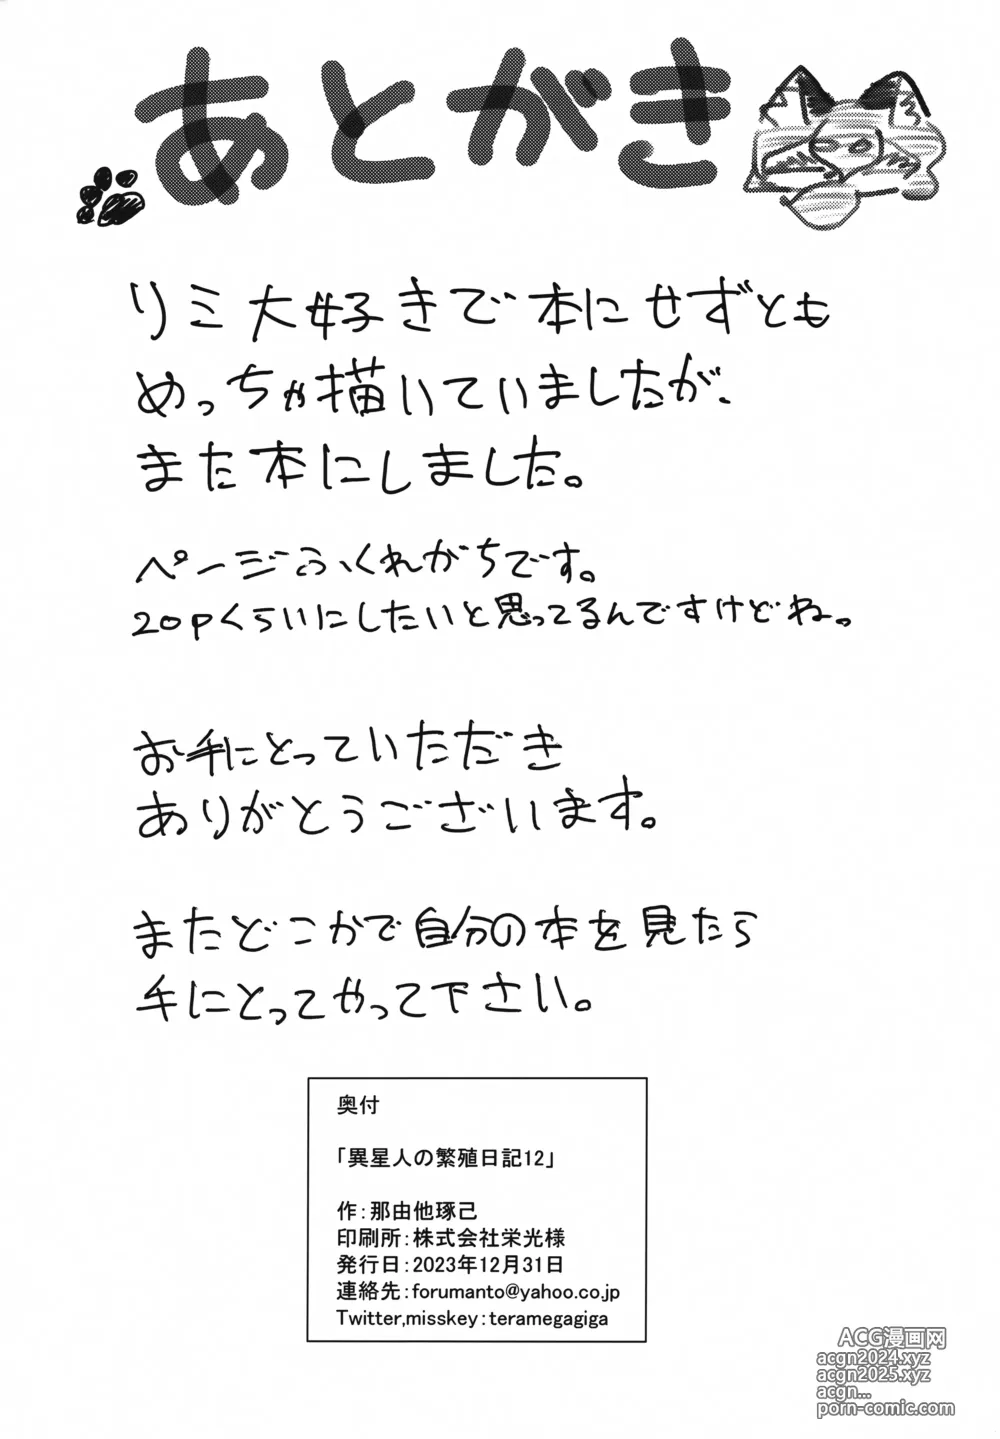 あとがき
リミ大好きで本にせずとも
めっちゃ描いていましたが、
また本にしました。
ページふくれがちです。
20pくらいにしたいと思ってるんですけどね。
お手にとっていただき
ありがとうございます。
またどこかで自分の本を見たら
手にとってやって下さい。
奥付
「異星人の繁殖日記12」
作：那由他琢己
印刷所：株式会社栄光様
発行日：2023年12月31日
連絡先：forumanto@yahoo.co.jp
Twitter,misskey：teramegagiga
ACG漫画网
acgn2024.xyz
acgn2025.xyz
acgn...
porn-comic.com